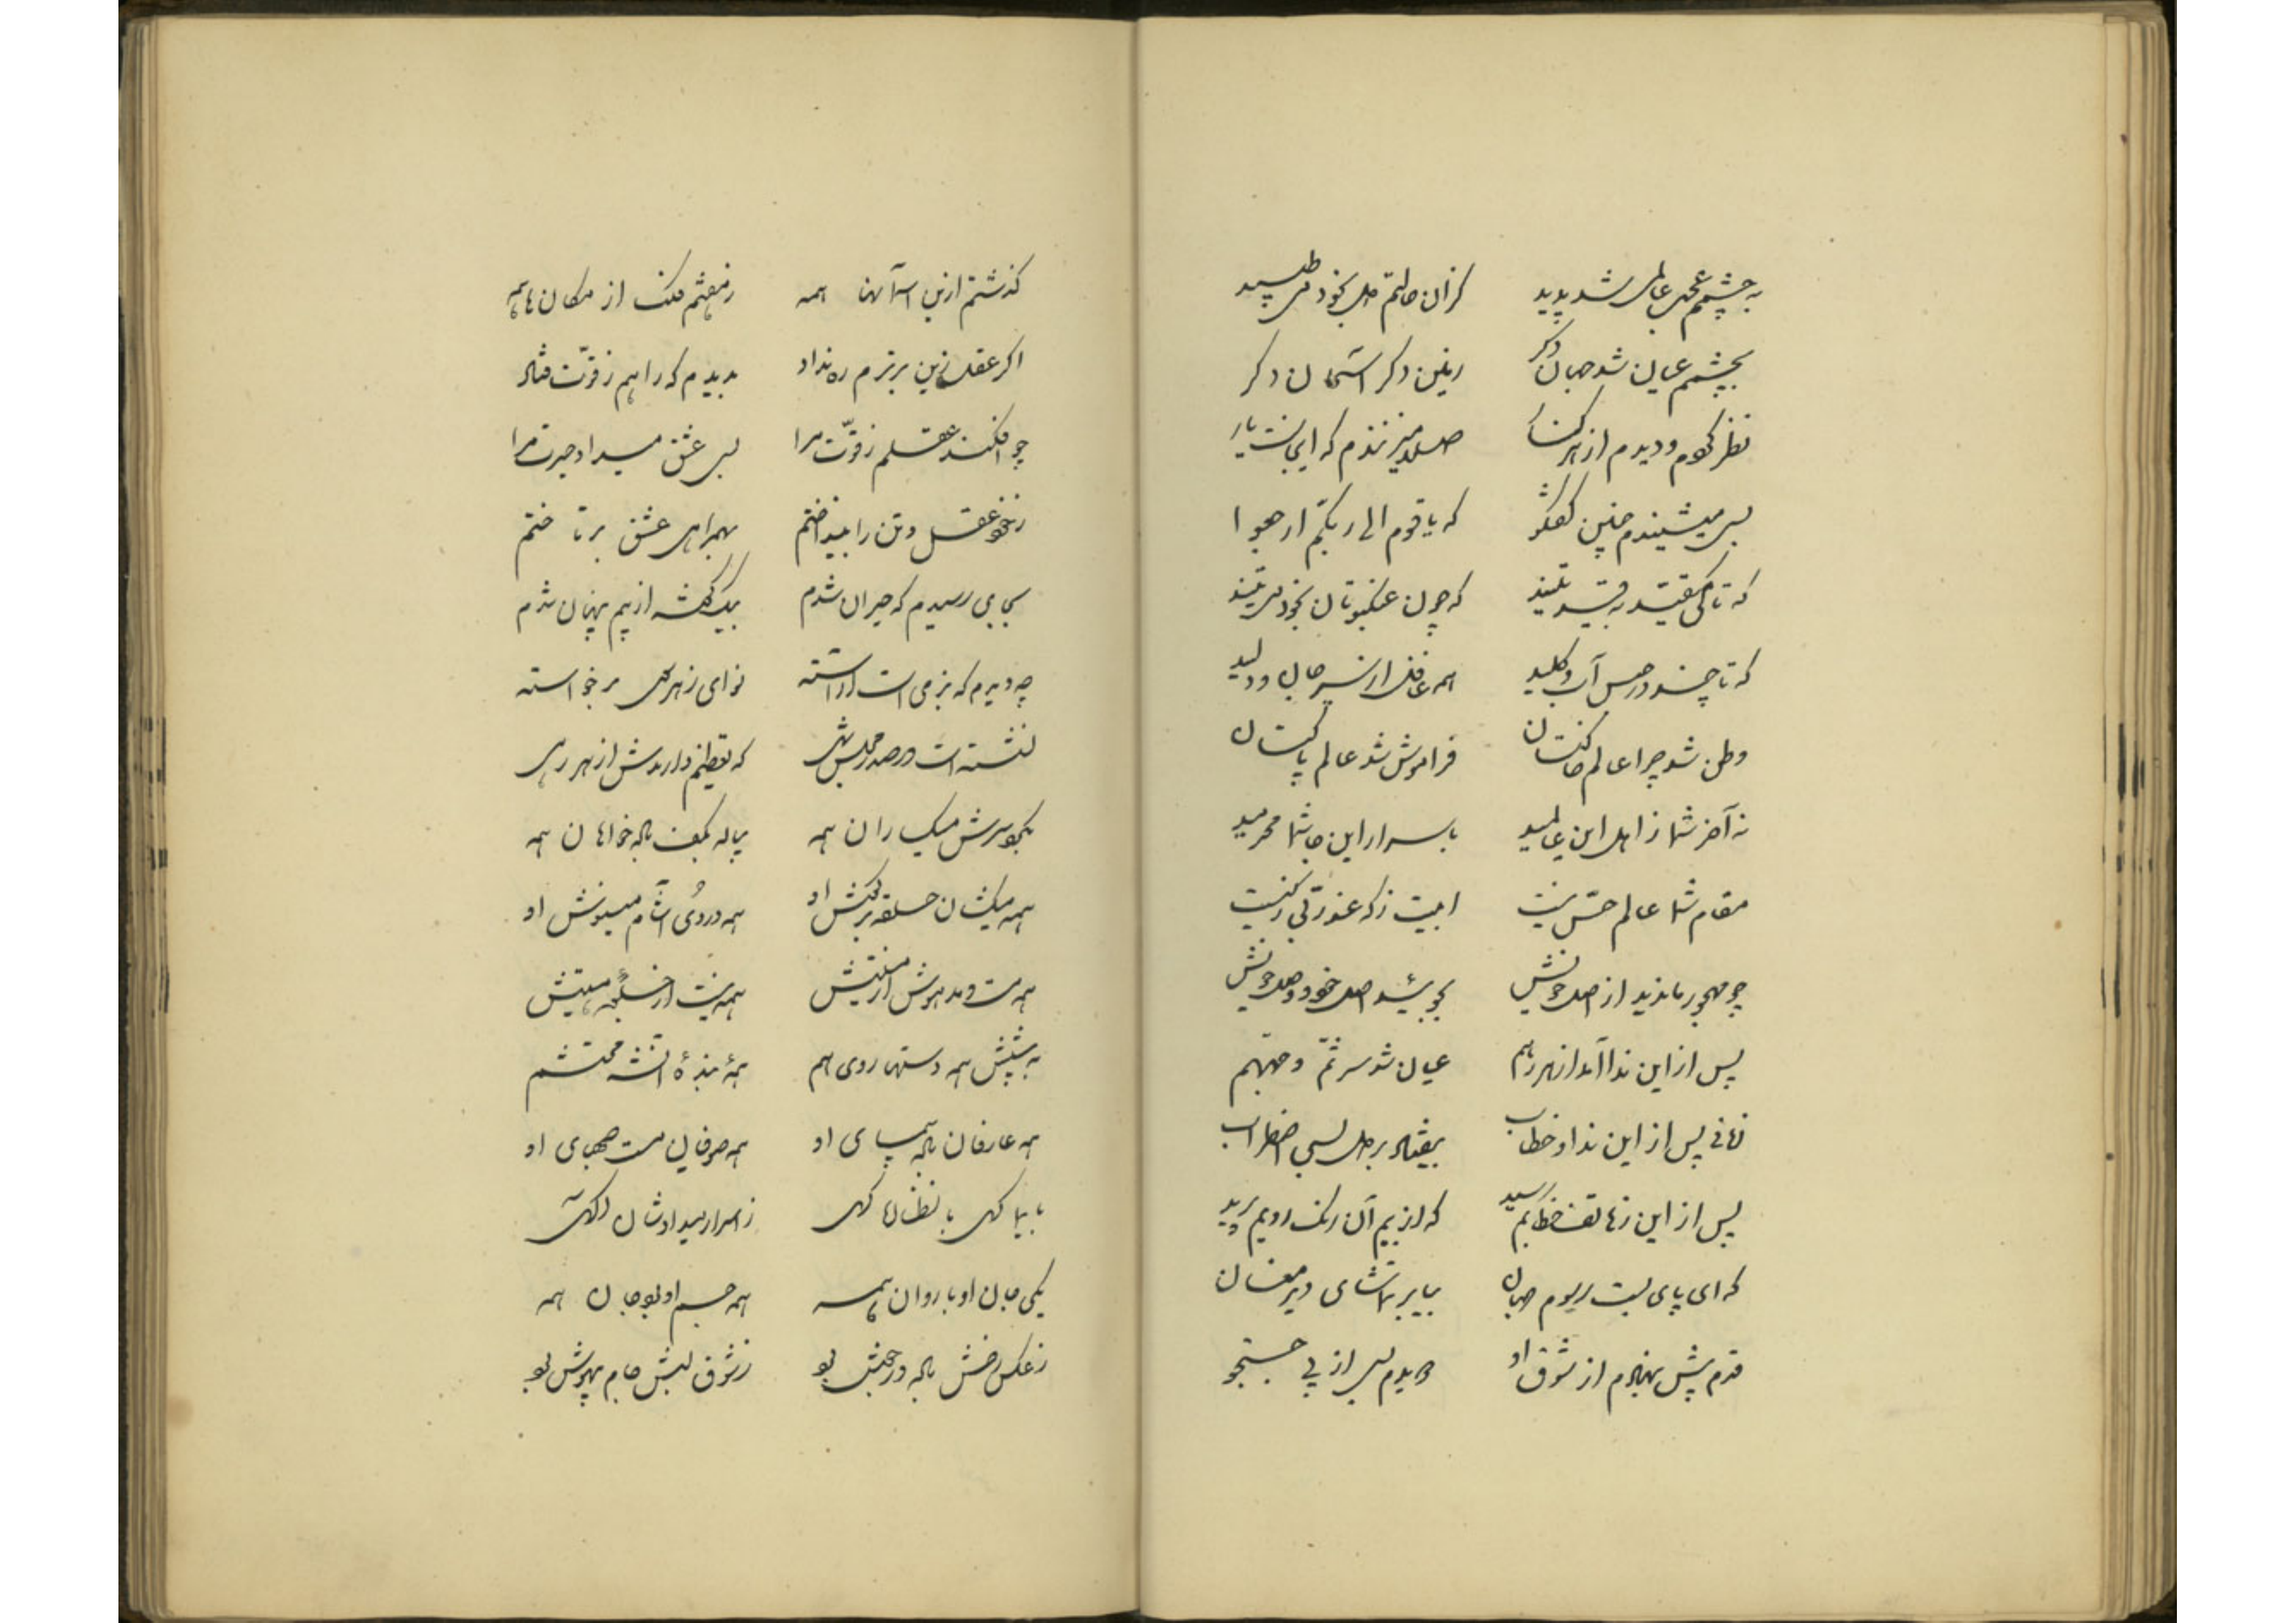 به چشمم عجب عالمی شد پدید کزان حالتم دل بخود می طپید
بچشمم عیان شد جهان دکر زمین دکر آسمان دکر
نظر کردم و دیدم از هر کنار صدا میزنندم که اینست یار
بسی میشنیدم چنین گفتگو که یا قوم الی ربکم ارجعوا
که تا کی مقید به قید تنید که چون عنکبوتان بخود می تنید
که تا چند در حبس آب و کلید همه غافل از سر جان و دلید
وطن شد چرا عالم خاکتان فراموش شد عالم پاکتان
نه آخر شما ز اهل این عالمید باسرار این جا شما محرمید
مقام شما عالم حس نیست ابیت
چو مهجور ماندید از اصل خویش بجوئید اصل خود و وصل خویش
پس از این ندا آمد از هر رهم عیان شد سر ثم وجهم
زمانی پس از این ندا و خطاب بیفتاد بر دل بسی اضطراب
پس از این ز هاتف خطابم رسید که از بیم آن رنک رویم پرید
که ای پای بست رسوم جهان بیا بر تماشای دیر مغان
قدم پیش بنهادم از شوق او دویدم بسی از پی جستجو
کذشتم ازین آسمانها همه برفتم ملک از مکان ها همه
اکر عقل زین برترم ره نداد بدیدم که راهم ز قوت فتاد
چو افکند عقلم ز قوت مرا بسی عشق میداد جرئت مرا
ز خود عقل و تن را بینداختم بهمراهی عشق برتاختم
بجایی رسیدم که حیران شدم بیک گوشه از بیم پنهان شدم
چه دیدم که بزمی است آراسته نوای ز هر سوی برخواسته
نشسته است در صدر مجلس شهی که تعظیم دارندش از هر رهی
بکبوسرش میکساران همه پیاله بکف باده خواهان همه
همه میکشان حلقه بر کش او همه دردی آشام مینوش او
همه مست و مدهوش از مستیش همه نیست از جلوه هستیش
به پیشش همه دستها روی هم همه بنده آن شه محتشم
همه عارفان باده پیمای او همه صوفیان مست صهبای او
با یما کهی با نظرها کهی ز اسرار میداد شان آکهی
یکی جان او با روان همه همه جسم او بود جان همه
ز عکس رخش باده در جوش بود ز شوق لبش جام بیهوش بود